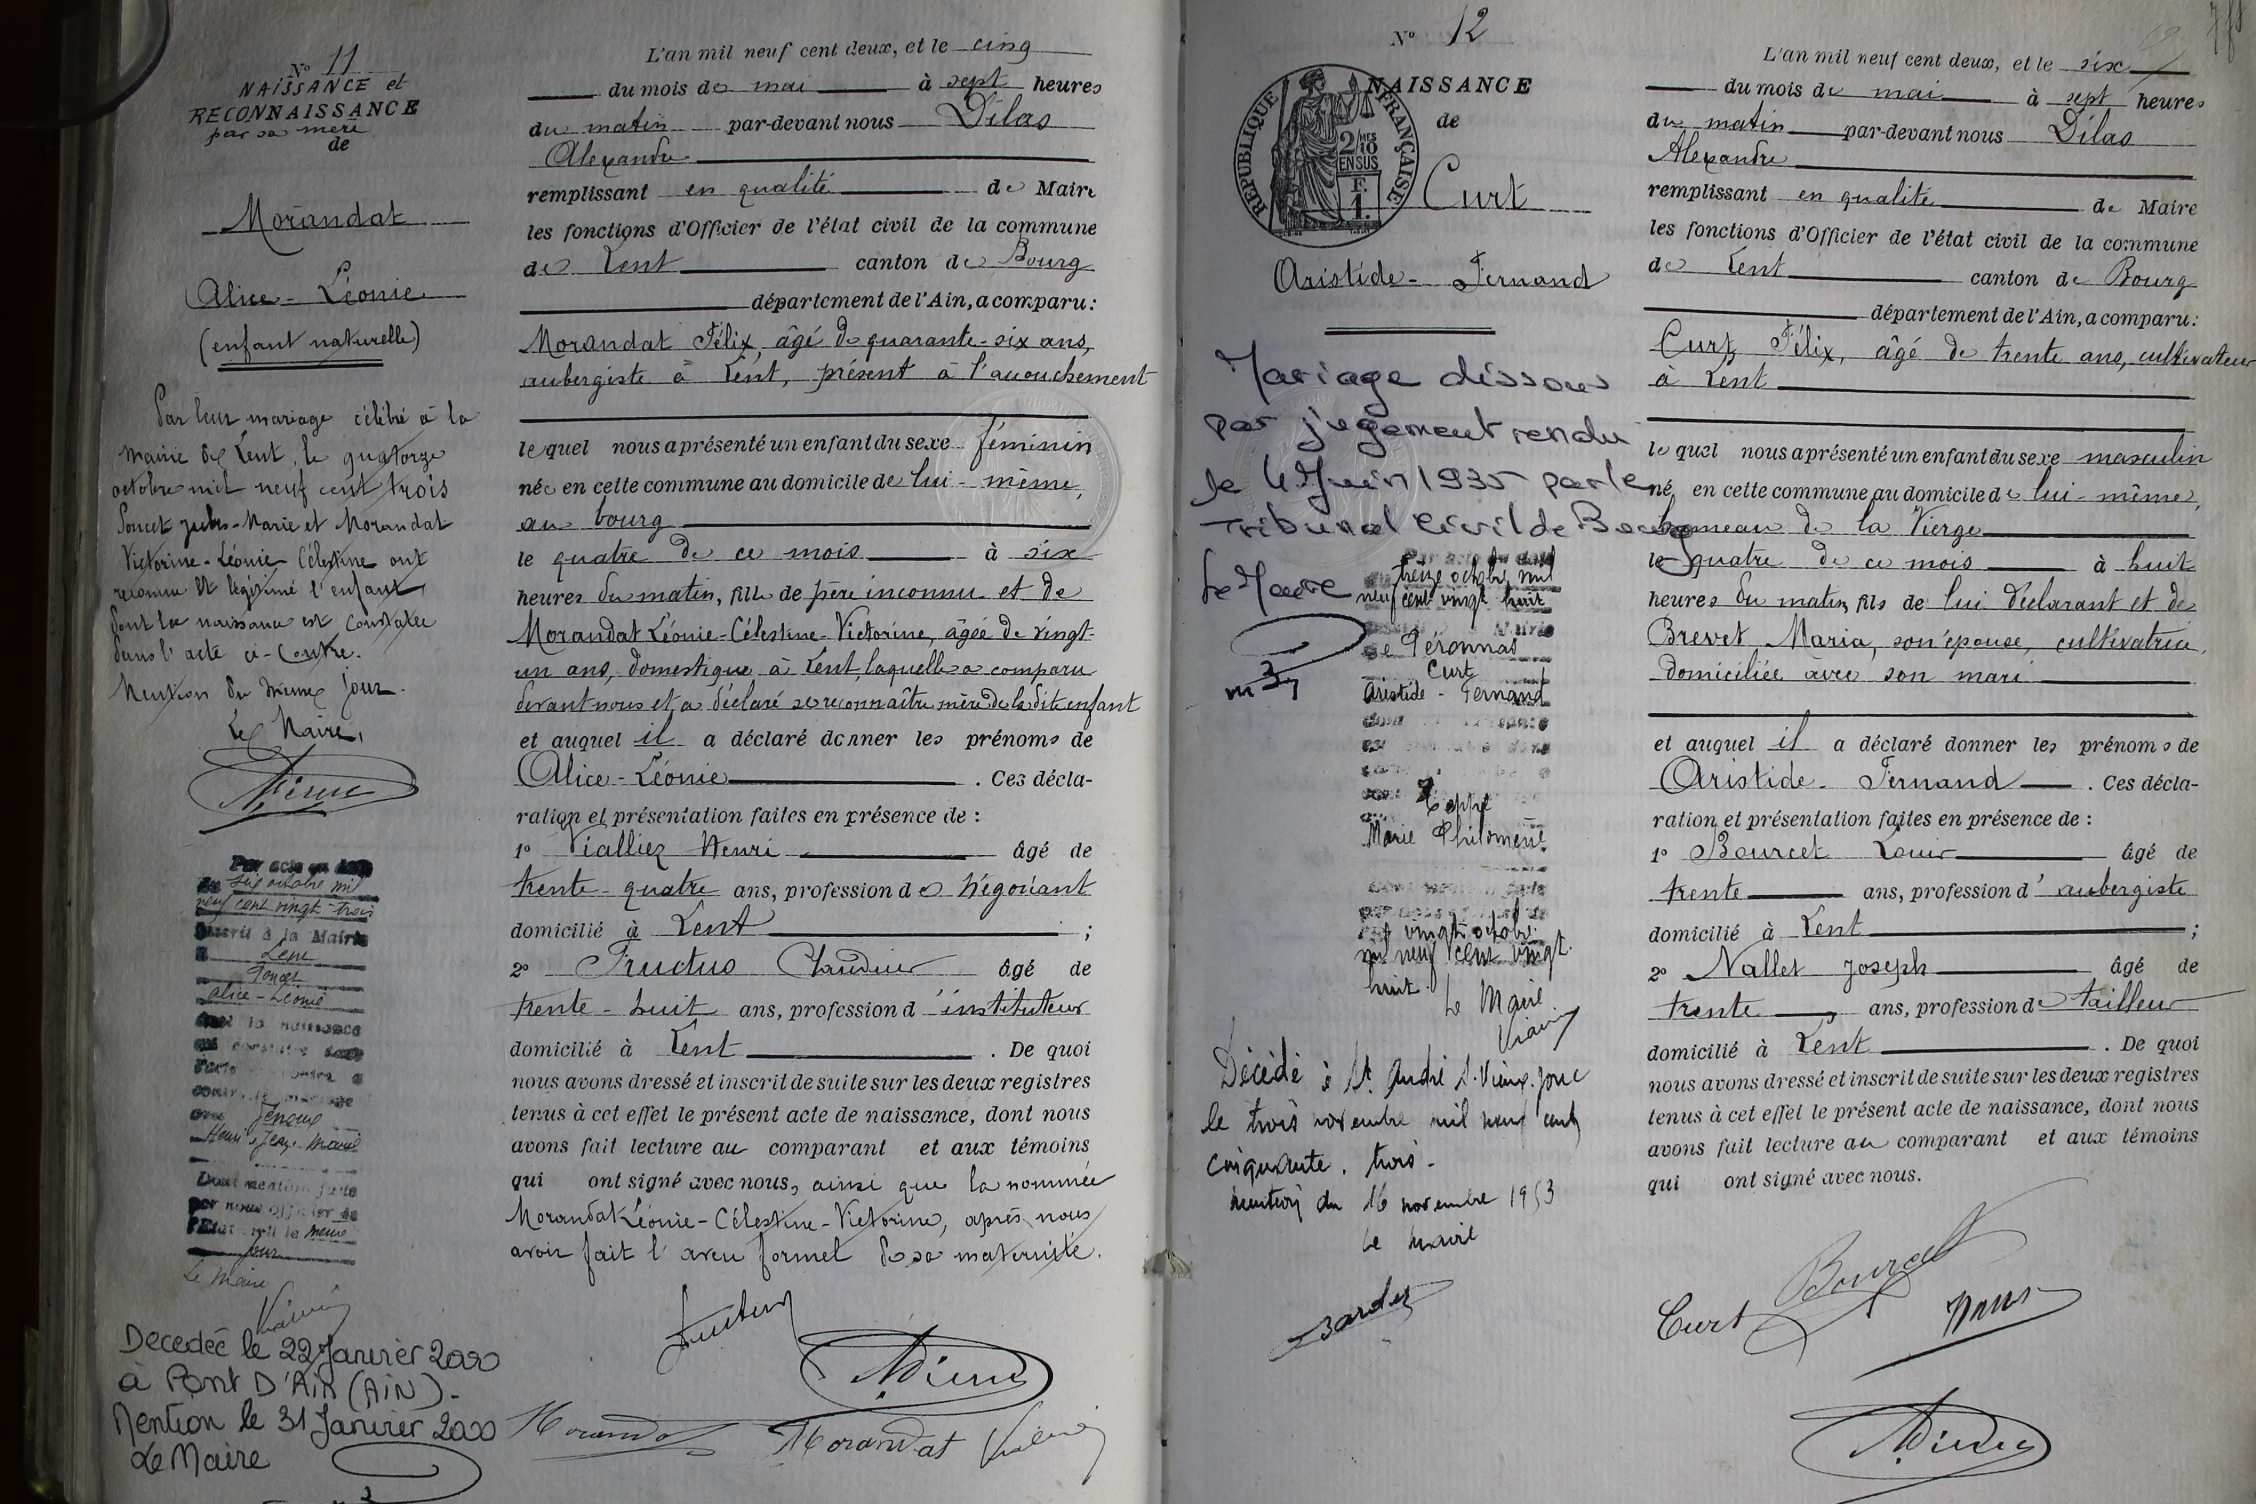 N° 11
NAISSANCE et
RECONNAISSANCE
par sa mère
de
Morandat
Alice - Léonie
(enfant naturelle)
Par leur mariage célébré à la
mairie de Lent, le quatorze
octobre mil neuf cent trois
Poncet Jules-Marie et Morandat
Victorine-Léonie Célestine ont
reconnu et légitimé l'enfant
dont la naissance est constatée
dans l'acte ci-contre.
Mention du même jour.
Le Maire,
Par acte en date
du six octobre mil
neuf cent vingt-trois
inscrit à la Mairie
Lent
Poncet
Alice-Léonie
dont la naissance
est constatée dans
l'acte ci-contre a
contracté mariage
avec
Henri Jean Marie
Dont mention faite
par nous officier de
l'Etat civil le même
jour
Le Maire
Décédée le 22 Janvier 2000
à PONT D'AIN (AIN).
Mention le 31 Janvier 2000
Le Maire
L'an mil neuf cent deux, et le cinq
du mois de mai à sept heures
du matin par-devant nous Dilas
Alexandre
remplissant en qualité de Maire
les fonctions d'Officier de l'état civil de la commune
de Lent canton de Bourg
département de l'Ain, a comparu:
Morandat Félix, âgé de quarante-six ans,
aubergiste à Lent, présent à l'accouchement
lequel nous a présenté un enfant du sexe féminin
née en cette commune au domicile de lui-même,
au bourg
le quatre de ce mois à six
heures du matin, fille de père inconnu et de
Morandat Léonie-Célestine-Victorine, âgée de vingt-
un ans, domestique à Lent, laquelle a comparu
devant nous et a déclaré se reconnaître mère de la dite enfant
et auquel il a déclaré donner les prénoms de
Alice-Léonie. Ces décla-
ration et présentation faites en présence de :
1° Vialliez Henri âgé de
trente-quatre ans, profession de négociant
domicilié à Lent ;
2° Fructus Claudius âgé de
trente-huit ans, profession d'instituteur
domicilié à Lent. De quoi
nous avons dressé et inscrit de suite sur les deux registres
tenus à cet effet le présent acte de naissance, dont nous
avons fait lecture au comparant et aux témoins
qui ont signé avec nous, ainsi que la nommée
Morandat Léonie-Célestine-Victorine, après nous
avoir fait l'aveu formel de sa maternité.
Fructus
Morandat Morandat
N° 12
RÉPUBLIQUE FRANÇAISE
2/10 MES
EN SUS
F.
1.
NAISSANCE
de
Curt
Aristide - Fernand
Mariage dissous
par jugement rendu
le 4 Juin 1935 par le
Tribunal Civil de Bourg
Le Maire
Par acte en date
treize octobre mil
neuf cent vingt huit
de Péronnas
Curt
Aristide - Fernand
Marie Philomène
vingt octobre
mil neuf cent vingt
huit.
Le Maire
Décédé à St André s. Vieux-Jonc
le trois novembre mil neuf cent
cinquante-trois -
Mention du 16 novembre 1953
Le Maire
L'an mil neuf cent deux, et le six
du mois de mai à sept heures
du matin par-devant nous Dilas
Alexandre
remplissant en qualité de Maire
les fonctions d'Officier de l'état civil de la commune
de Lent canton de Bourg
département de l'Ain, a comparu:
Curt Félix, âgé de trente ans, cultivateur
à Lent
lequel nous a présenté un enfant du sexe masculin
né en cette commune au domicile de lui-même,
hameau de la Vierge
le quatre de ce mois à huit
heures du matin, fils de lui déclarant et de
Brevet Maria, son épouse, cultivatrice,
domiciliée avec son mari
et auquel il a déclaré donner les prénoms de
Aristide - Fernand. Ces décla-
ration et présentation faites en présence de :
1° Bourcet Louis âgé de
trente ans, profession d'aubergiste
domicilié à Lent ;
2° Nallet Joseph âgé de
trente ans, profession de tailleur
domicilié à Lent. De quoi
nous avons dressé et inscrit de suite sur les deux registres
tenus à cet effet le présent acte de naissance, dont nous
avons fait lecture au comparant et aux témoins
qui ont signé avec nous.
Bourcet
Curt